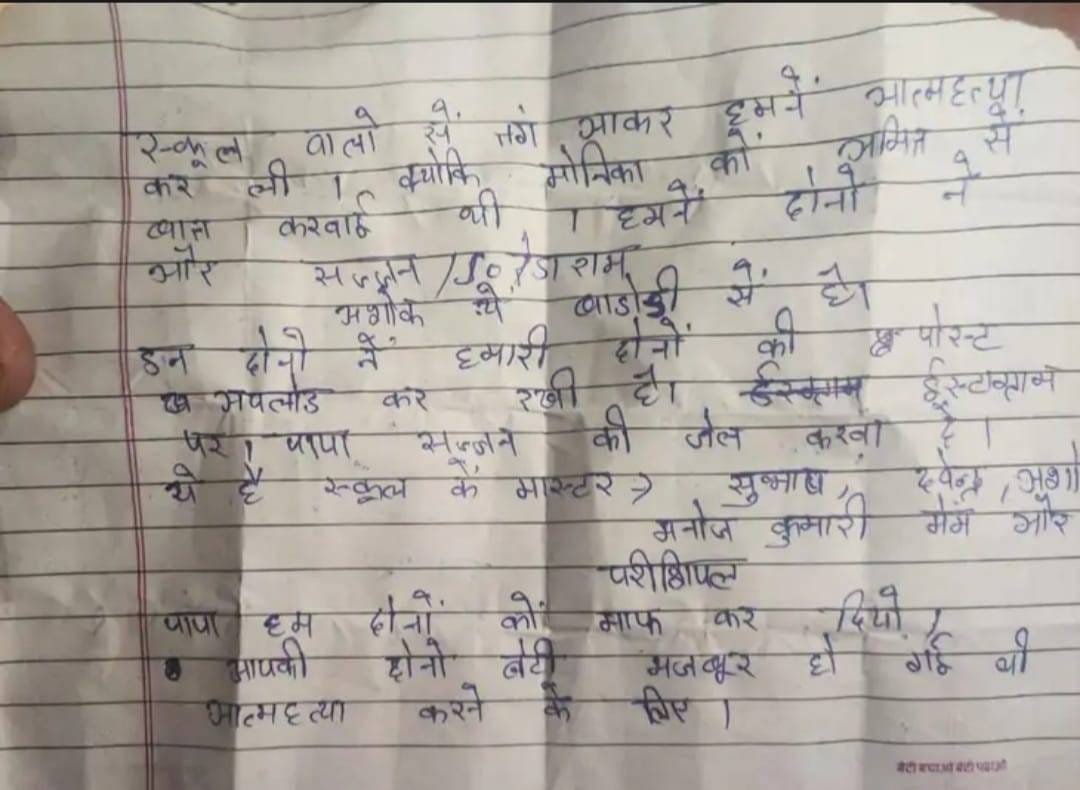 स्कूल वालो से तंग आकर हमने आत्महत्या
कर ली । क्योकि मोनिका को अमित से
बात करवाई थी । हमने दोनो ने
और सज्जन / S०
अशोक ये बाडोडी से है।
इन दोनो ने हमारी दोनों की पोस्ट
अपलोड कर रखी है। ईस्टाग्राम
पर । पापा सज्जन की जेल करवा दे ।
ये है स्कूल के मास्टर → सुभाष, देवेन्द्र, अशो
मनोज कुमारी मेम और
परीशिपल
पापा हम दोनों को माफ कर दियो ।
आपकी दोनो बेटी मजबूर हो गई थी
आत्महत्या करने के लिए ।
बेटी बचाओ बेटी पढाओ